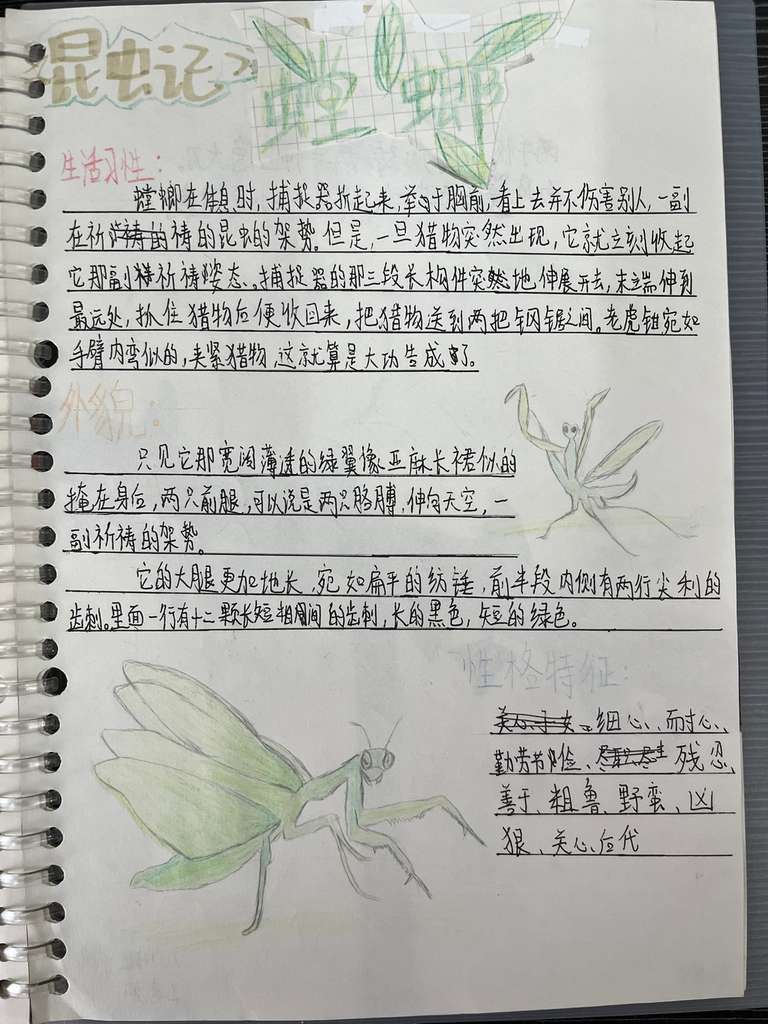 昆虫记之
螳螂
生活习性：
螳螂在休息时，捕捉器折起来，举于胸前，看上去并不伤害别人，一副
在祈祷的昆虫的架势。但是，一旦猎物突然出现，它就立刻收起
它那副祈祷姿态。捕捉器的那三段长构件突然地伸展开去，末端伸到
最远处，抓住猎物后便收回来，把猎物送到两把钢锯之间。老虎钳宛如
手臂内弯似的，夹紧猎物，这就算是大功告成了。
外貌：
只见它那宽阔薄透的绿翼像亚麻长裙似的
掩在身后，两只前腿，可以说是两只胳膊，伸向天空，一
副祈祷的架势。
它的大腿更加地长，宛如扁平的纺锤，前半段内侧有两行尖利的
齿刺。里面一行有十二颗长短相间的齿刺，长的黑色，短的绿色。
性格特征：
细心、耐心、
勤劳节俭、残忍、
善于、粗鲁、野蛮、凶
狠、关心后代